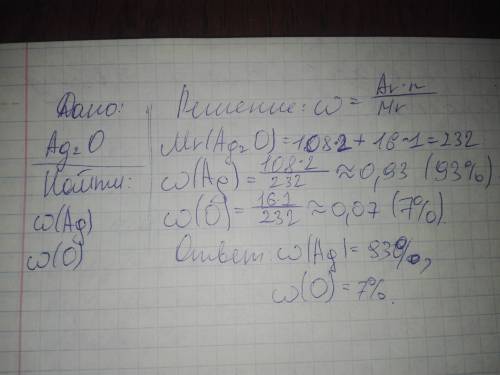 Дано:
Ag₂O
Найти:
ω(Ag)
ω(O)
Решение: ω = Ar·n / Mr
Mr(Ag₂O) = 108·2 + 16·1 = 232
ω(Ag) = 108·2 / 232 ≈ 0,93 (93%)
ω(O) = 16·1 / 232 ≈ 0,07 (7%)
Ответ: ω(Ag) = 93%,
ω(O) = 7%.